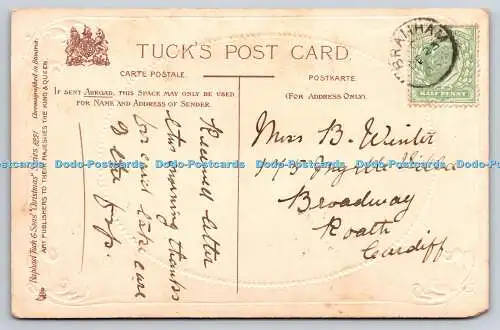 TUCK'S POST CARD.
CARTE POSTALE.
POSTKARTE
IF SENT ABROAD, THIS SPACE MAY ONLY BE USED
FOR NAME AND ADDRESS OF SENDER.
(FOR ADDRESS ONLY).
HALF PENNY
Raphael Tuck & Sons' "Christmas" Series 8291
ART PUBLISHERS TO THEIR MAJESTIES THE KING & QUEEN.
Chromographed in Bavaria.
letter
this morning thanks
for card take care
Miss B. Winter
Broadway
Roath
Cardiff
Dodo-Postcards Dodo-Postcards Dodo-Postcards Dodo-Postcards